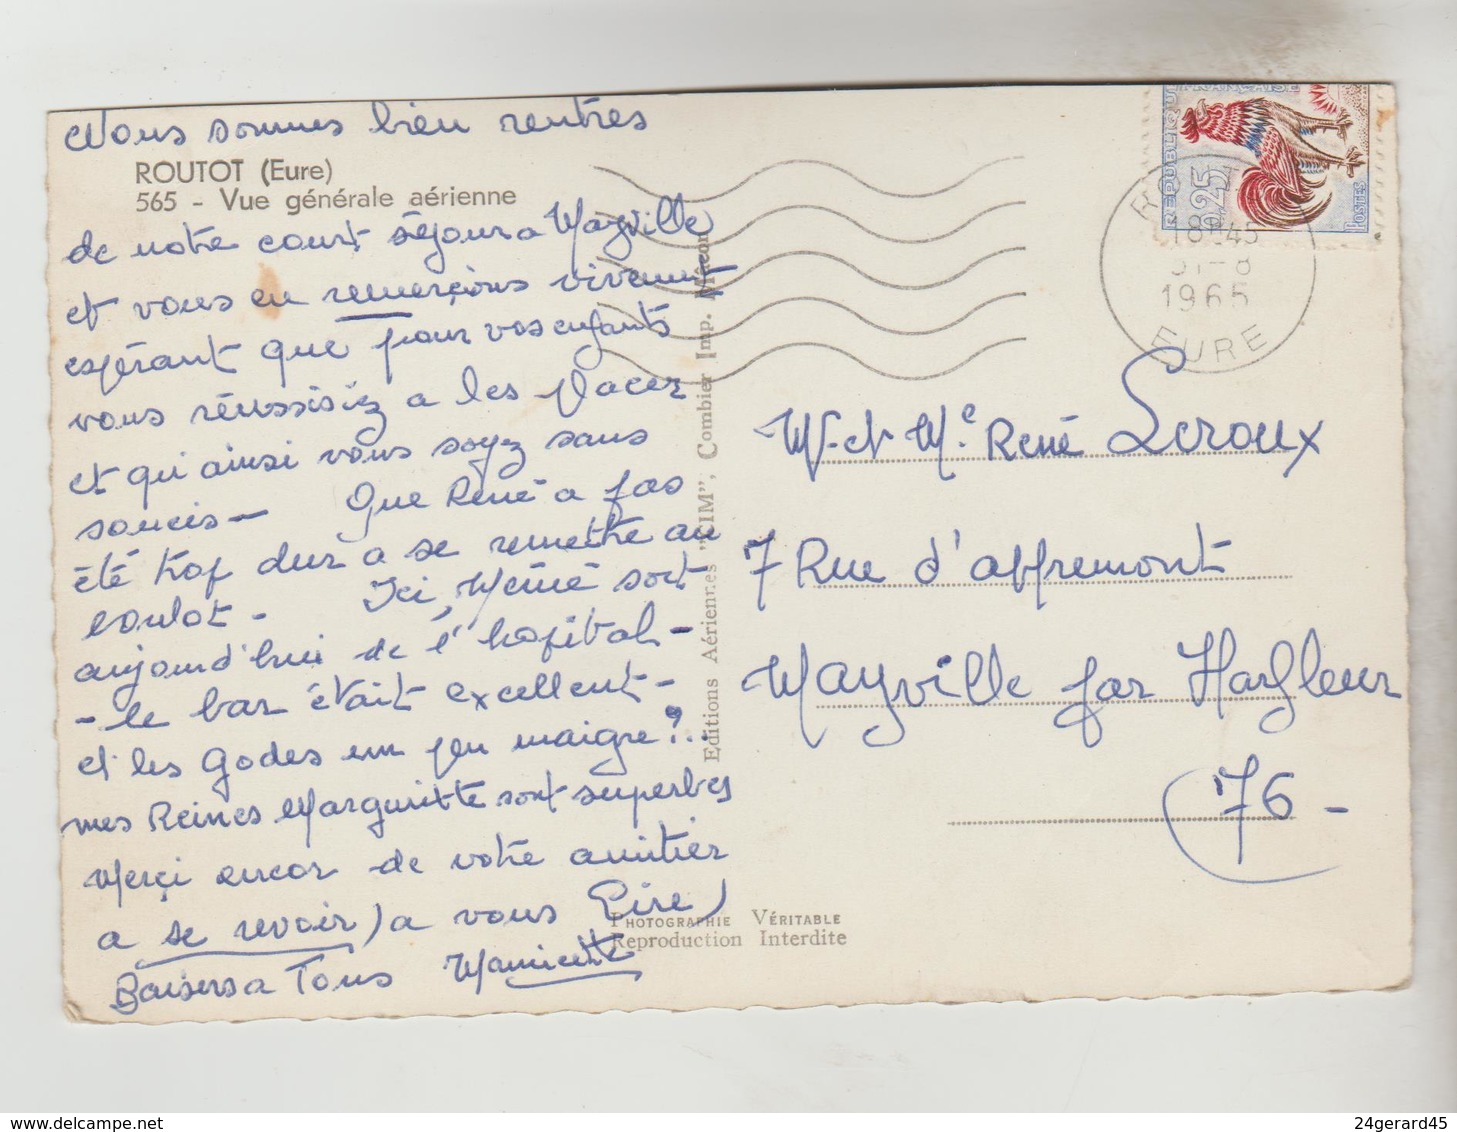 Nous sommes bien rentrés
ROUTOT (Eure)
565 - Vue générale aérienne
de notre court séjour a Mayville
et vous en remerçions vivement
espérant que pour vos enfants
vous réussisiez a les placer
et qu'ainsi vous soyez sans
soucis - Que René a pas
été trop dur a se remettre au
boulot - Ici, Mémé sort
aujourd'hui de l'hopital -
- le bar était excellent -
et les Godes un peu maigre ?..
mes Reines Marguritte sont superbes
Merçi encor de votre amitier
a se revoir) a vous Lire)
Baisers a Tous
Editions Aériennes "CIM", Combier Imp. Mâcon
PHOTOGRAPHIE VÉRITABLE
Reproduction Interdite
REPUBLIQUE FRANÇAISE
0,25
POSTES
18H45
31-8
1965
EURE
M. et Me René Leroux
7 Rue d'affremont
Mayville par Harfleur
76 -
24gerard45